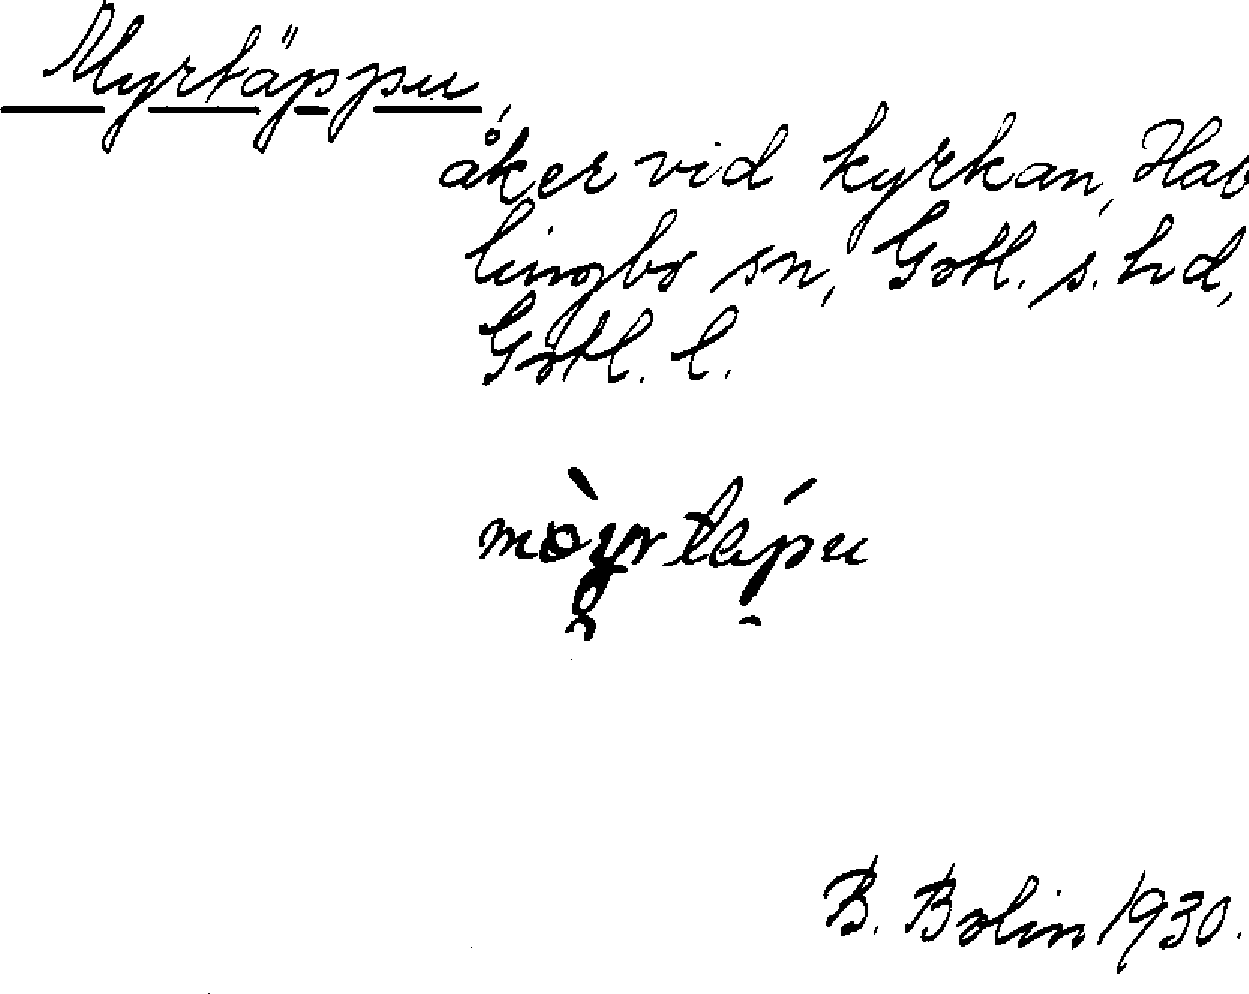 Myrtäppu,
åker vid kyrkan, Hab
lingbo sn, Gotl. s. hd,
Gotl. l.
B. Bolin 1930.